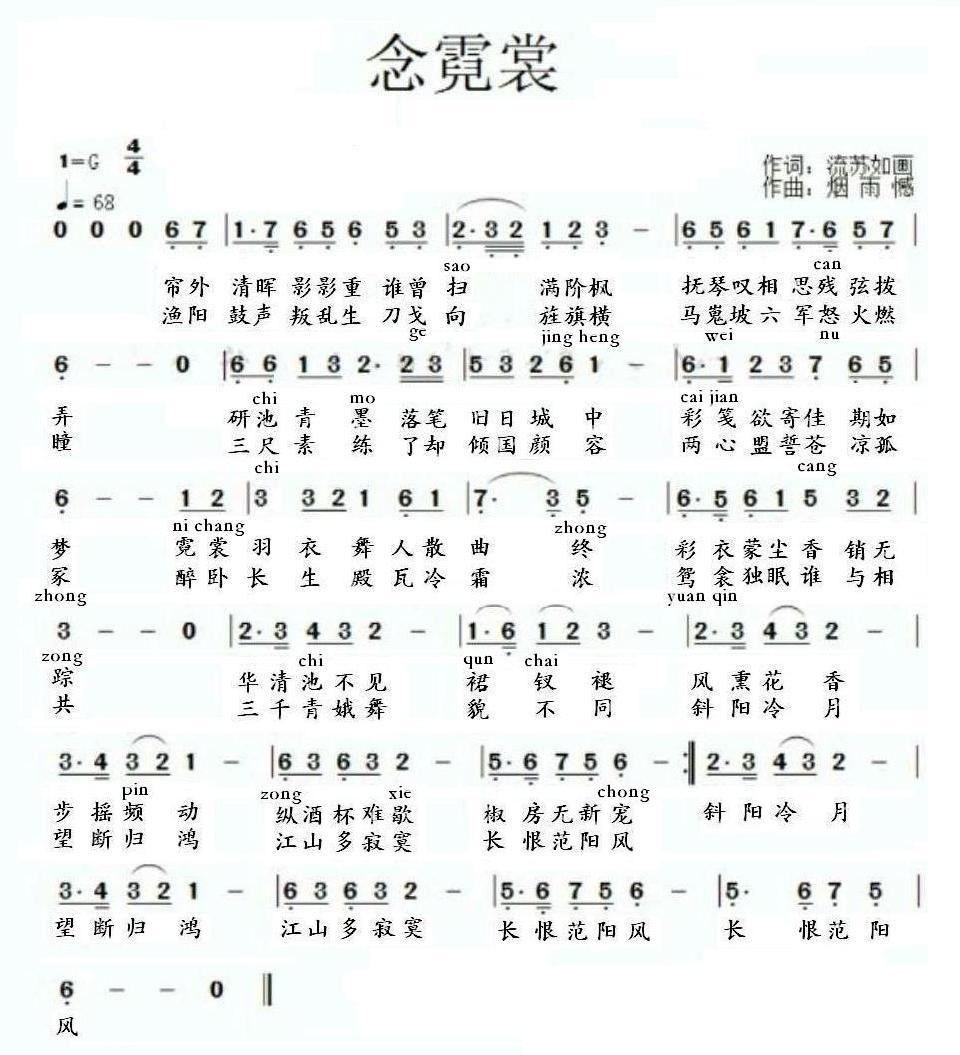 念霓裳
1=G 4/4
作词：流苏如画
♩=68
作曲：烟雨憾
0 0 0 6 7 | 1· 7 6 5 6 5 3 | 2· 3 2 1 2 3 – | 6 5 6 1 7· 6 5 7 |
sao can
帘外 清晖 影影重 谁曾 扫 满阶枫 抚琴叹相 思残 弦拨
渔阳 鼓声 叛乱生 刀戈 向 旌旗横 马嵬坡六 军怒 火燃
ge jing heng wei nu
6 – – 0 | 6 6 1 3 2· 2 3 | 5 3 2 6 1 – | 6· 1 2 3 7 6 5 |
chi mo cai jian
弄 研池 青 墨 落笔 旧日 城 中 彩 笺欲寄佳 期如
瞳 三尺 素 练 了却 倾国 颜 容 两 心盟誓苍 凉孤
chi cang
6 – – 1 2 | 3 3 2 1 6 1 | 7· 3 5 – | 6· 5 6 1 5 3 2 |
ni chang zhong
梦 霓裳 羽 衣 舞 人散 曲 终 彩 衣蒙尘香 销无
冢 醉卧 长 生 殿 瓦冷 霜 浓 鸳 衾独眠谁 与相
zhong yuan qin
3 – – 0 | 2· 3 4 3 2 – | 1· 6 1 2 3 – | 2· 3 4 3 2 – |
zong chi qun chai
踪 华清池不见 裙 钗 褪 风 熏花 香
共 三千青娥舞 貌 不 同 斜阳冷 月
3· 4 3 2 1 – | 6 3 6 3 2 – | 5· 6 7 5 6 – :| 2· 3 4 3 2 – |
pin zong xie chong
步 摇频 动 纵酒杯难歇 椒 房无新宠 斜阳冷 月
望 断归 鸿 江山多寂寞 长 恨范阳风
3· 4 3 2 1 – | 6 3 6 3 2 – | 5· 6 7 5 6 – | 5· 6 7 5 |
望 断归 鸿 江山多寂寞 长 恨范阳风 长 恨范 阳
6 – – 0 ‖
风